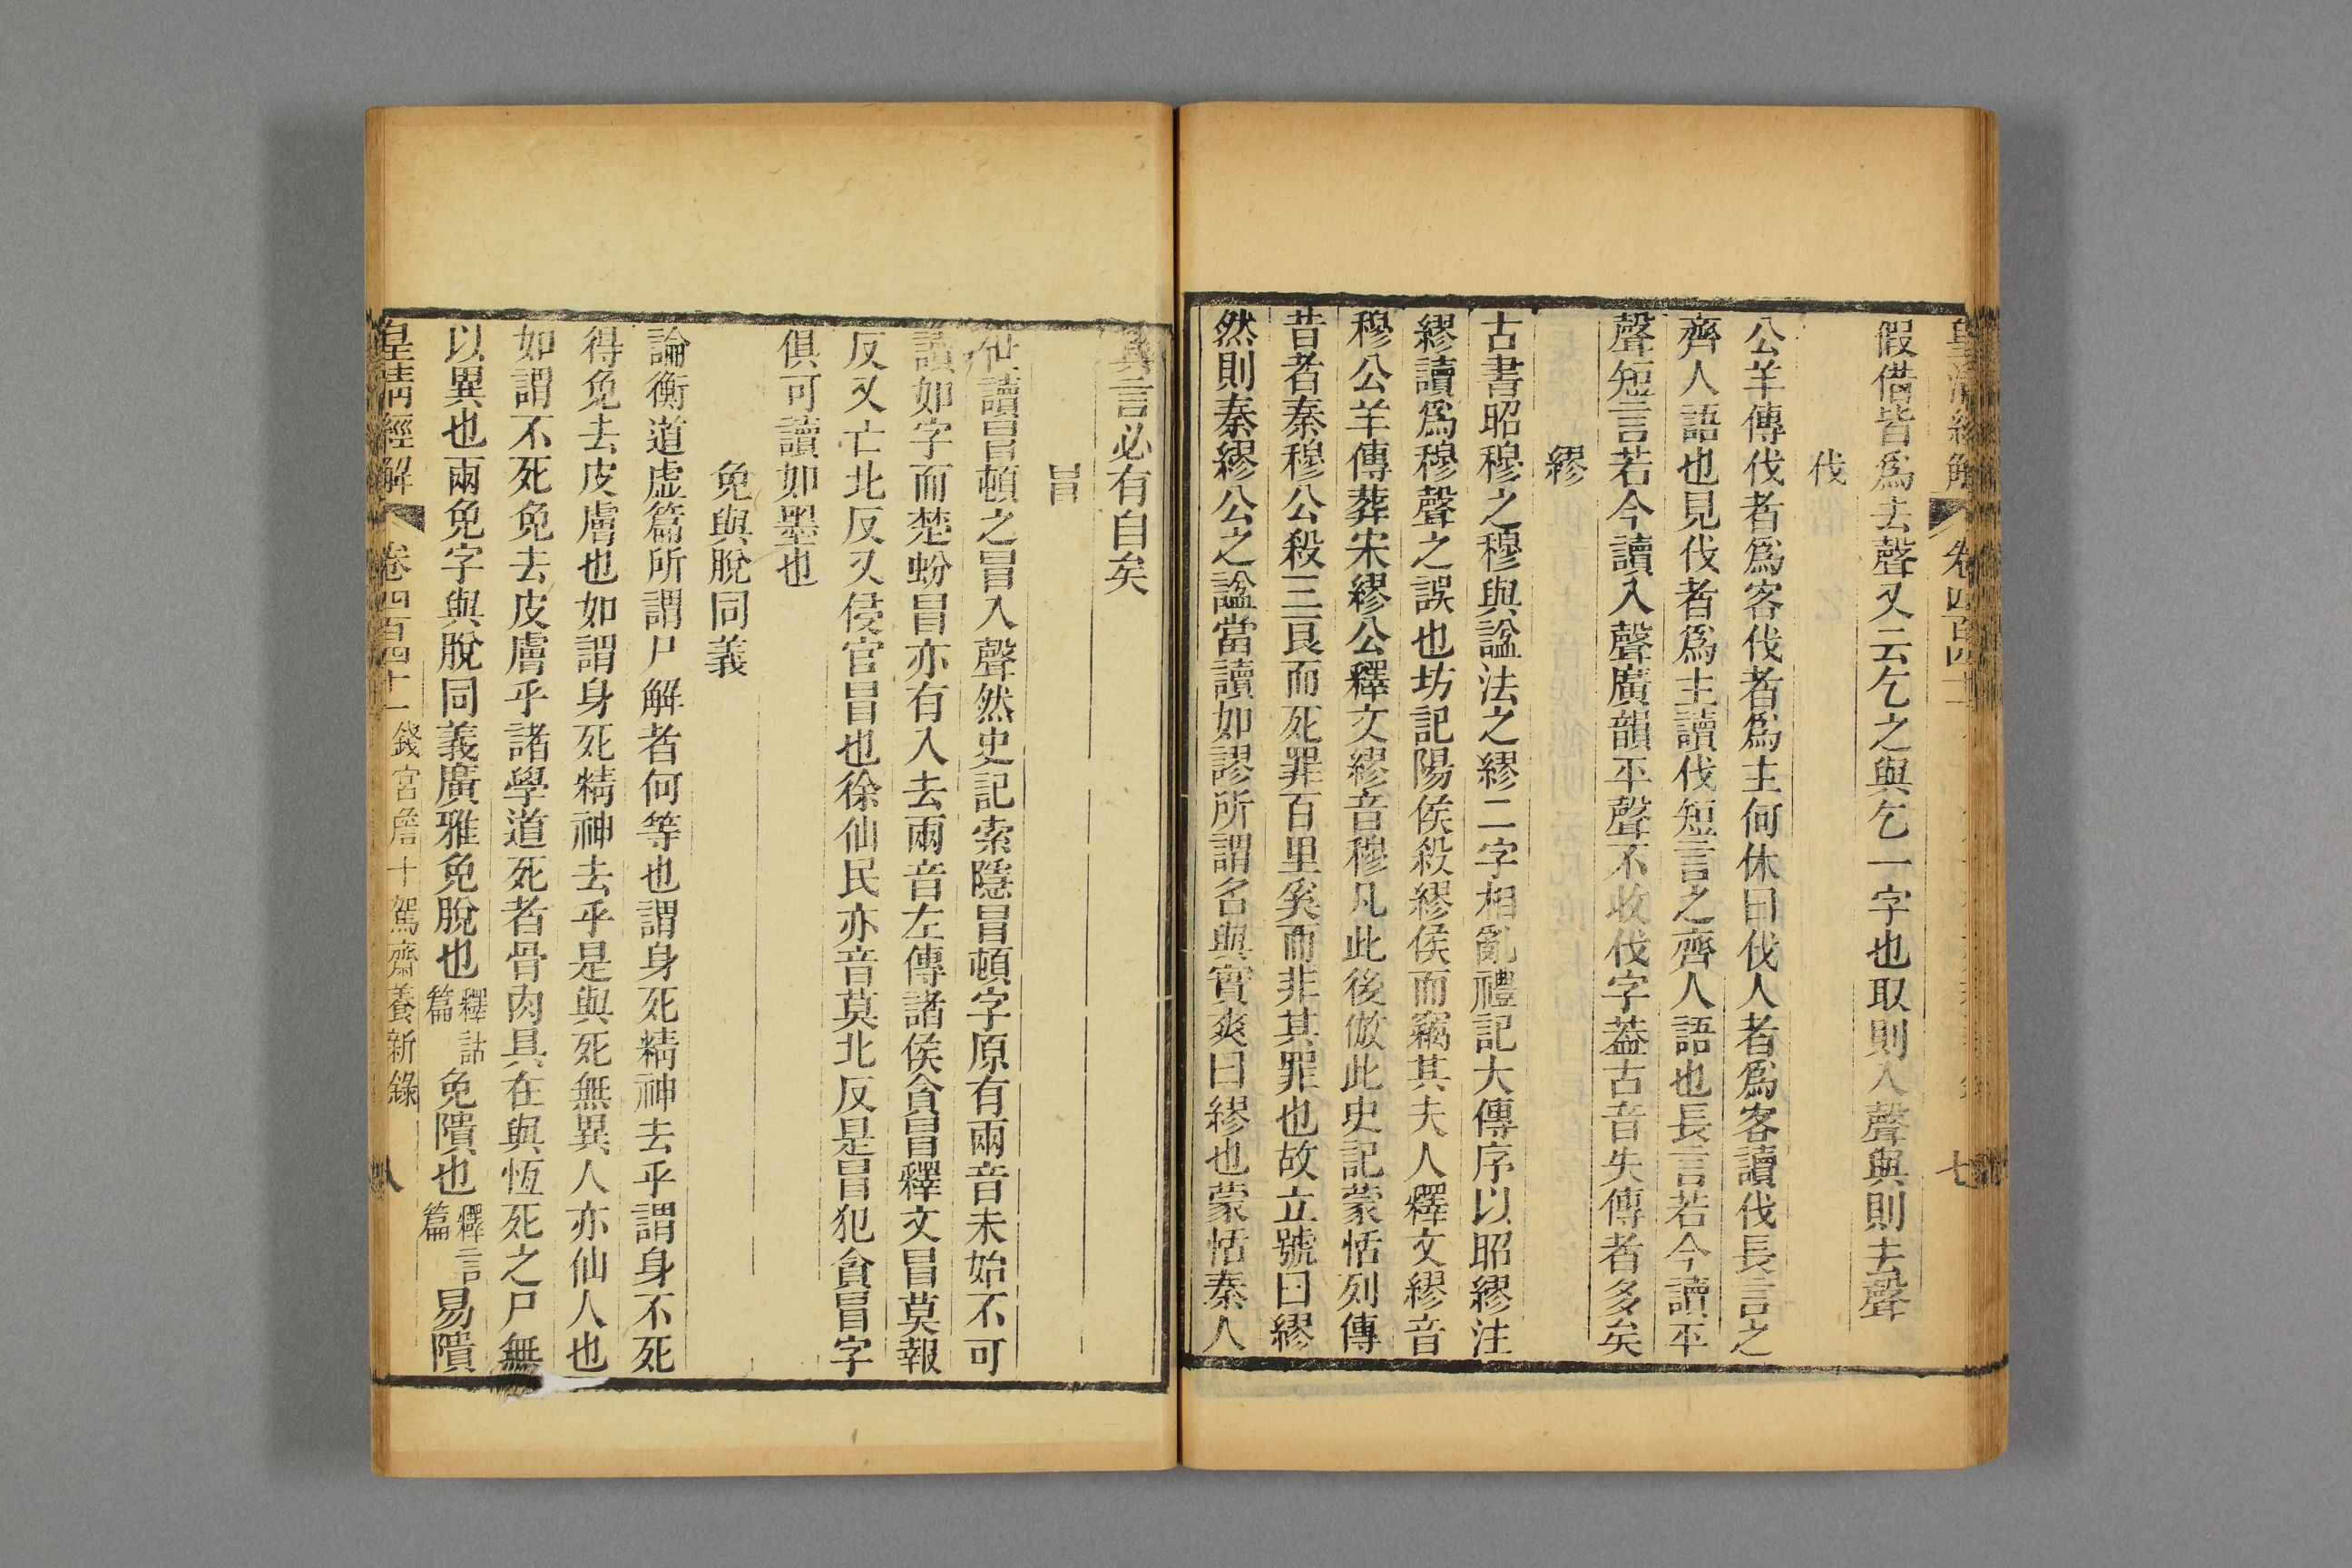 皇清經解 卷四百四十一 七
假借皆爲去聲又云乞之與乞一字也取則入聲與則去聲
伐
公羊傳伐者爲客伐者爲主何休曰伐人者爲客讀伐長言之
齊人語也見伐者爲主讀伐短言之齊人語也長言若今讀平
聲短言若今讀入聲廣韻平聲不收伐字葢古音失傳者多矣
繆
古書昭穆之穆與諡法之繆二字相亂禮記大傳序以昭繆注
繆讀爲穆聲之誤也坊記陽侯殺繆侯而竊其夫人釋文繆音
穆公羊傳葬宋繆公釋文繆音穆凡此後倣此史記蒙恬列傳
昔者秦穆公殺三良而死罪百里奚而非其罪也故立號曰繆
然則秦繆公之諡當讀如謬所謂名與實爽曰繆也蒙恬秦人
其言必有自矣
冒
世讀冒頓之冒入聲然史記索隱冒頓字原有兩音未始不可
讀如字而楚蚡冒亦有入去兩音左傳諸侯貪冒釋文冒莫報
反又亡北反又侵官冒也徐仙民亦音莫北反是冒犯貪冒字
俱可讀如墨也
免與脫同義
論衡道虛篇所謂尸解者何等也謂身死精神去乎謂身不死
得免去皮膚也如謂身死精神去乎是與死無異人亦仙人也
如謂不死免去皮膚乎諸學道死者骨肉具在與恆死之尸無
以異也兩免字與脫同義廣雅免脫也釋詁篇免隤也釋言篇易隤
皇清經解 卷四百四十一 錢宮詹十駕齋養新錄 八